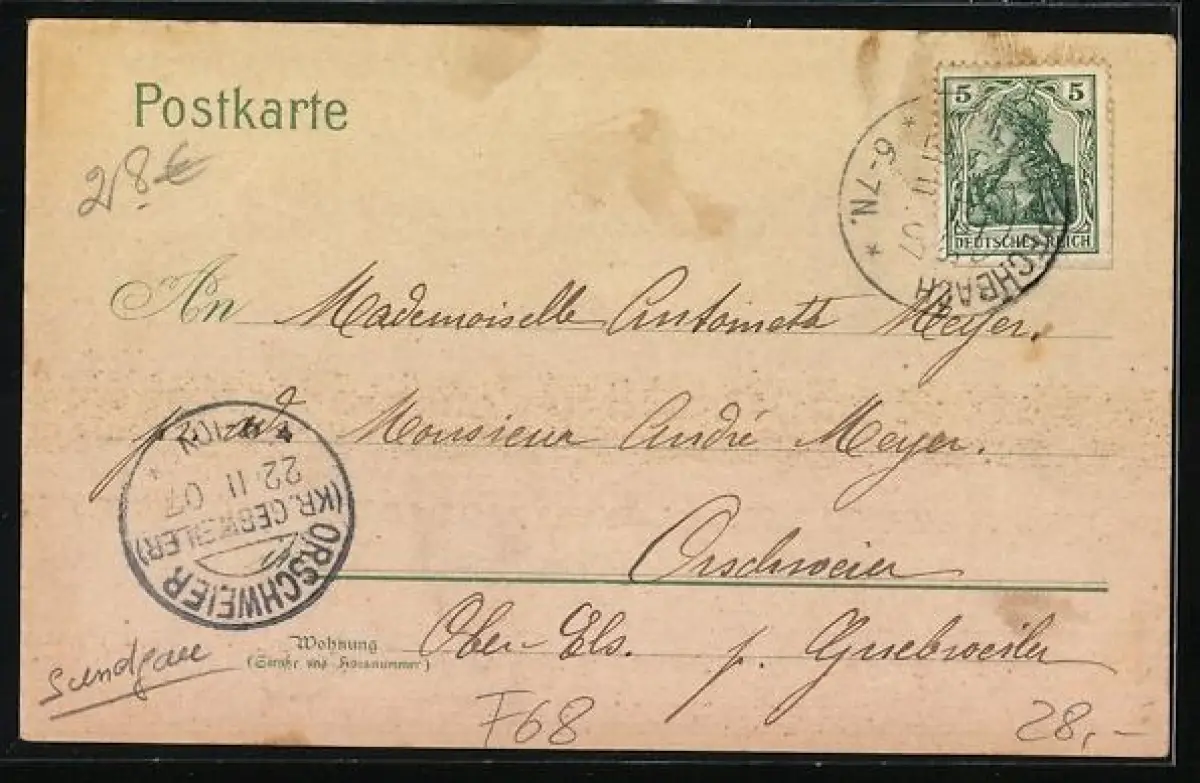 Postkarte
28 €
5 5
DEUTSCHES REICH
6-7N.
11 07
An Mademoiselle Antoinette Meyer.
p. ad. Monsieur André Meyer.
22 11 07
(KR. GEBWEILER)
ORSCHWEIER
Orschweier
Wohnung
(Straße und Hausnummer)
Ober-Els. p. Guebweiler
Sundgau
F68
28,-